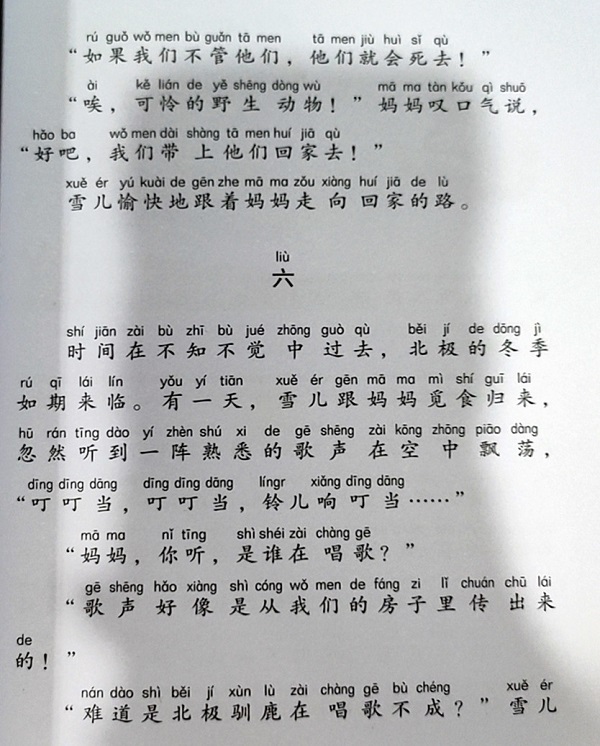 rú guǒ wǒ men bù guǎn tā men tā men jiù huì sǐ qù
“如果我们不管他们，他们就会死去！”
ài kě lián de yě shēng dòng wù mā ma tàn kǒu qì shuō
“唉，可怜的野生动物！”妈妈叹口气说，
hǎo ba wǒ men dài shàng tā men huí jiā qù
“好吧，我们带上他们回家去！”
xuě ér yú kuài de gēn zhe mā ma zǒu xiàng huí jiā de lù
雪儿愉快地跟着妈妈走向回家的路。
liù
六
shí jiān zài bù zhī bù jué zhōng guò qù běi jí de dōng jì
时间在不知不觉中过去，北极的冬季
rú qī lái lín yǒu yí tiān xuě ér gēn mā ma mì shí guī lái
如期来临。有一天，雪儿跟妈妈觅食归来，
hū rán tīng dào yí zhèn shú xi de gē shēng zài kōng zhōng piāo dàng
忽然听到一阵熟悉的歌声在空中飘荡，
dīng dīng dāng dīng dīng dāng língr xiǎng dīng dāng
“叮叮当，叮叮当，铃儿响叮当……”
mā ma nǐ tīng shì shéi zài chàng gē
“妈妈，你听，是谁在唱歌？”
gē shēng hǎo xiàng shì cóng wǒ men de fáng zi lǐ chuán chū lái
“歌声好像是从我们的房子里传出来
de
的！”
nán dào shì běi jí xùn lù zài chàng gē bù chéng xuě ér
“难道是北极驯鹿在唱歌不成？”雪儿